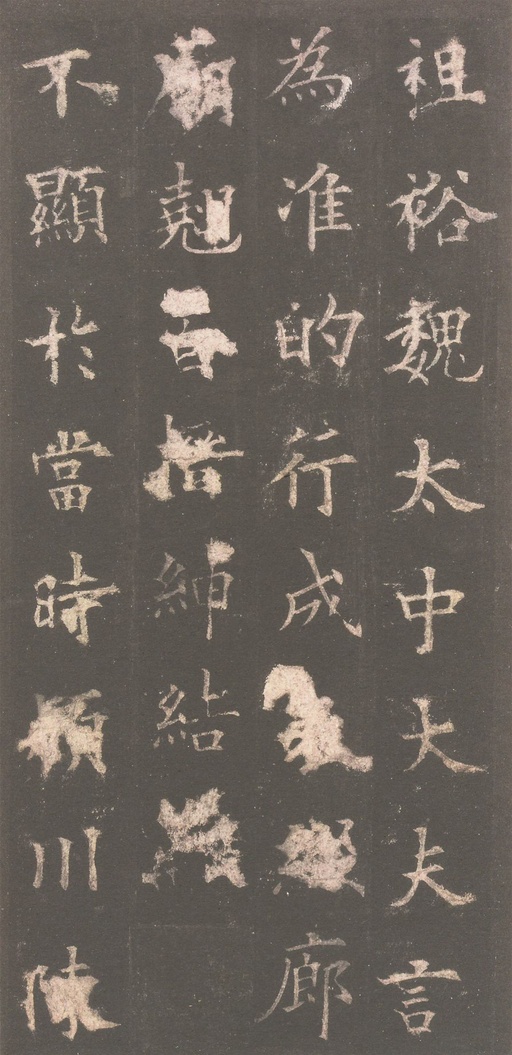 祖裕魏太中大夫言
為准的行成廊
廟魁百搢紳結
不顯於當時潁川陳